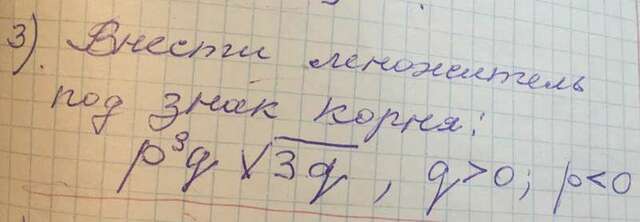 3). Внести множитель
под знак корня:
p³q √3q , q>0; p<0